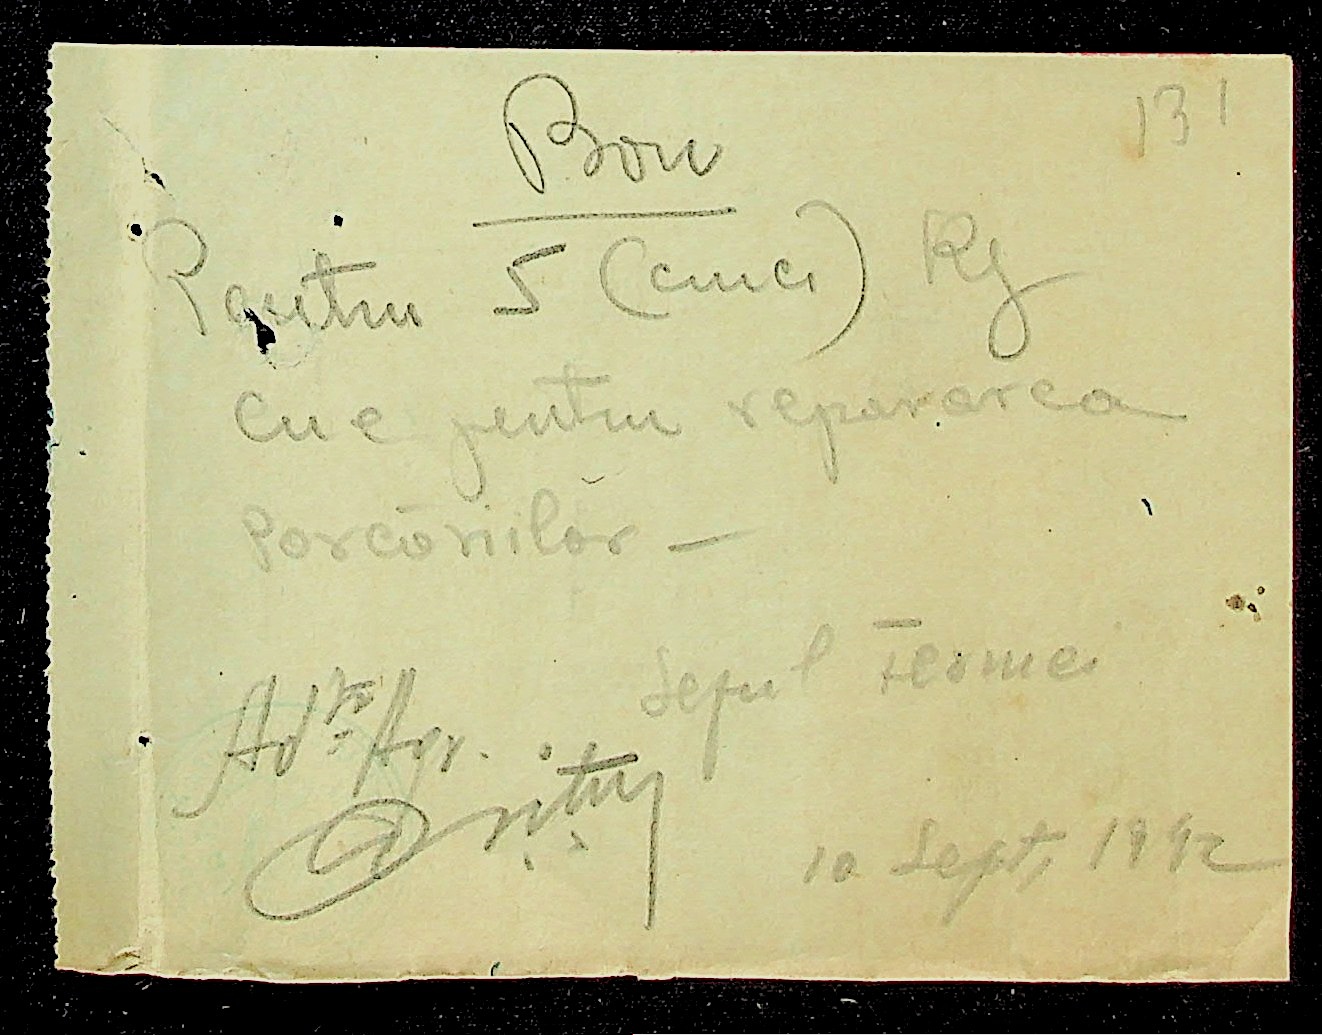 131
Bon
Pentru 5 (cinci) Kg
cue pentru repararea
Porcăriilor —
Șeful Fermei
Ad-tor Agr.
10 Sept, 1942